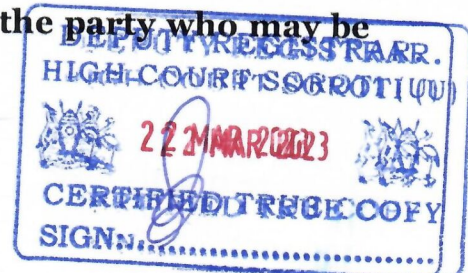 the party who may be
DEPUTY REGISTRAR.
HIGH COURT SOROTI (U)
22 MAR 2023
CERTIFIED TRUE COPY
SIGN:..............................